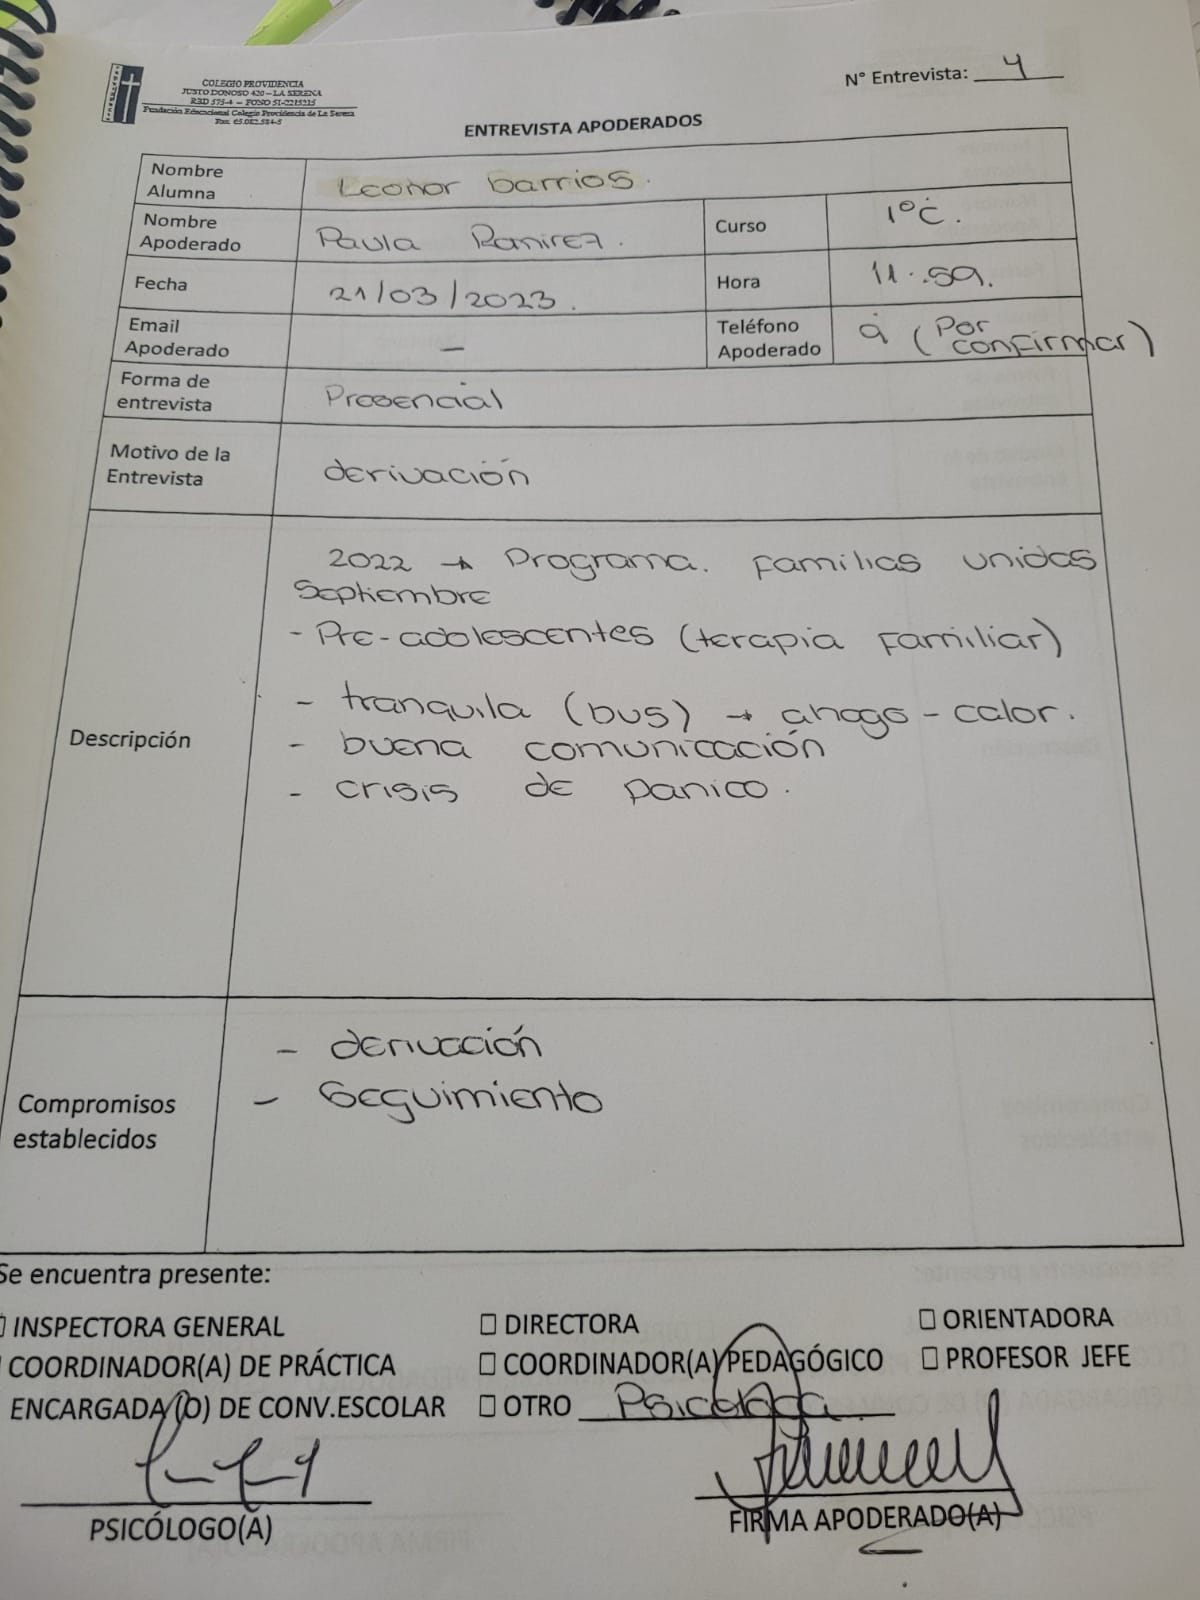 COLEGIO PROVIDENCIA
JUSTO DONOSO 420 – LA SERENA
RBD 575-4 – FONO 51-2215215
Fundación Educacional Colegio Providencia de La Serena
N° Entrevista: 4
ENTREVISTA APODERADOS
Nombre Alumna
Leonor barrios.
Nombre Apoderado
Paula Ramirez.
Curso
1°C.
Fecha
21/03/2023.
Hora
11:59.
Email Apoderado
–
Teléfono Apoderado
9 (Por confirmar)
Forma de entrevista
Presencial
Motivo de la Entrevista
derivación
Descripción
2022 → Programa. Familias unidas
Septiembre
- Pre-adolescentes (terapia Familiar)
- tranquila (bus) → ahogo - calor.
- buena comunicación
- crisis de panico.
Compromisos establecidos
- derivación
- Seguimiento
Se encuentra presente:
INSPECTORA GENERAL
☐ DIRECTORA
☐ ORIENTADORA
COORDINADOR(A) DE PRÁCTICA
☐ COORDINADOR(A) PEDAGÓGICO
☐ PROFESOR JEFE
ENCARGADA (O) DE CONV.ESCOLAR
☐ OTRO Psicologa
PSICÓLOGO(A)
FIRMA APODERADO(A)